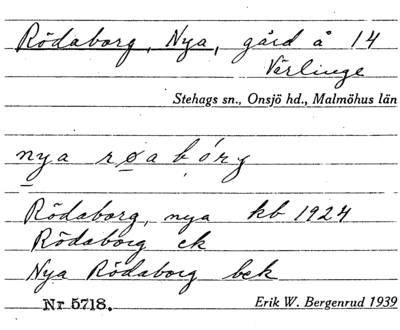 Rödaborg, Nya, gård å 14
Värlinge
Stehags sn., Onsjö hd., Malmöhus län
nya røabórg
Rödaborg, nya kb 1924
Rödaborg ek
Nya Rödaborg bek
Nr 5718. Erik W. Bergenrud 1939